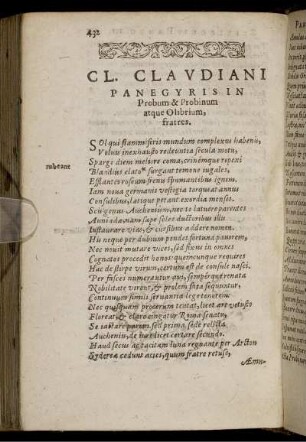 432
CL. CLAVDIANI
PANEGYRIS IN
Probum & Probinum
atque Olibrium,
fratres.
SOl qui flammiferis mundum complexus habenis,
Voluis inexhausto redeuntia secula motu,
Sparge diem meliore coma, crinémque repexi
Blandius elato surgant temone iugales,
Efflantes roseum frenis spumantibus ignem.
Iam noua germanis vestigia torqueat annus
Consulibus, lætíque petant exordia menses.
Scis genus Auchenium, nec te latuere potentes
Anniadæ: nam sæpe soles ductoribus illis
Instaurare vias, & cursibus addere nomen.
His neque per dubium pendet fortuna fauorem,
Nec nouit mutare vices, sed fixus in omnes
Cognatos procedit honos: quemcunque requires
Hac de stirpe virum, certum est de consule nasci.
Per fasces numerantur aui, sempérque renata
Nobilitate virent, & prolem fata sequuntur,
Continuum simili seruantia lege tenorem.
Nec quisquam procerum tentat, licet ære vetusto
Floreat, & claro cingatur Roma senatu,
Se iactare parem, sed prima sede relicta
Aucheniis, de iure licet certare secundo.
Haud secus ac tacitam luna regnante per Arcton
Sydereæ cedunt acies, quum fratre retuso,
Æmu-